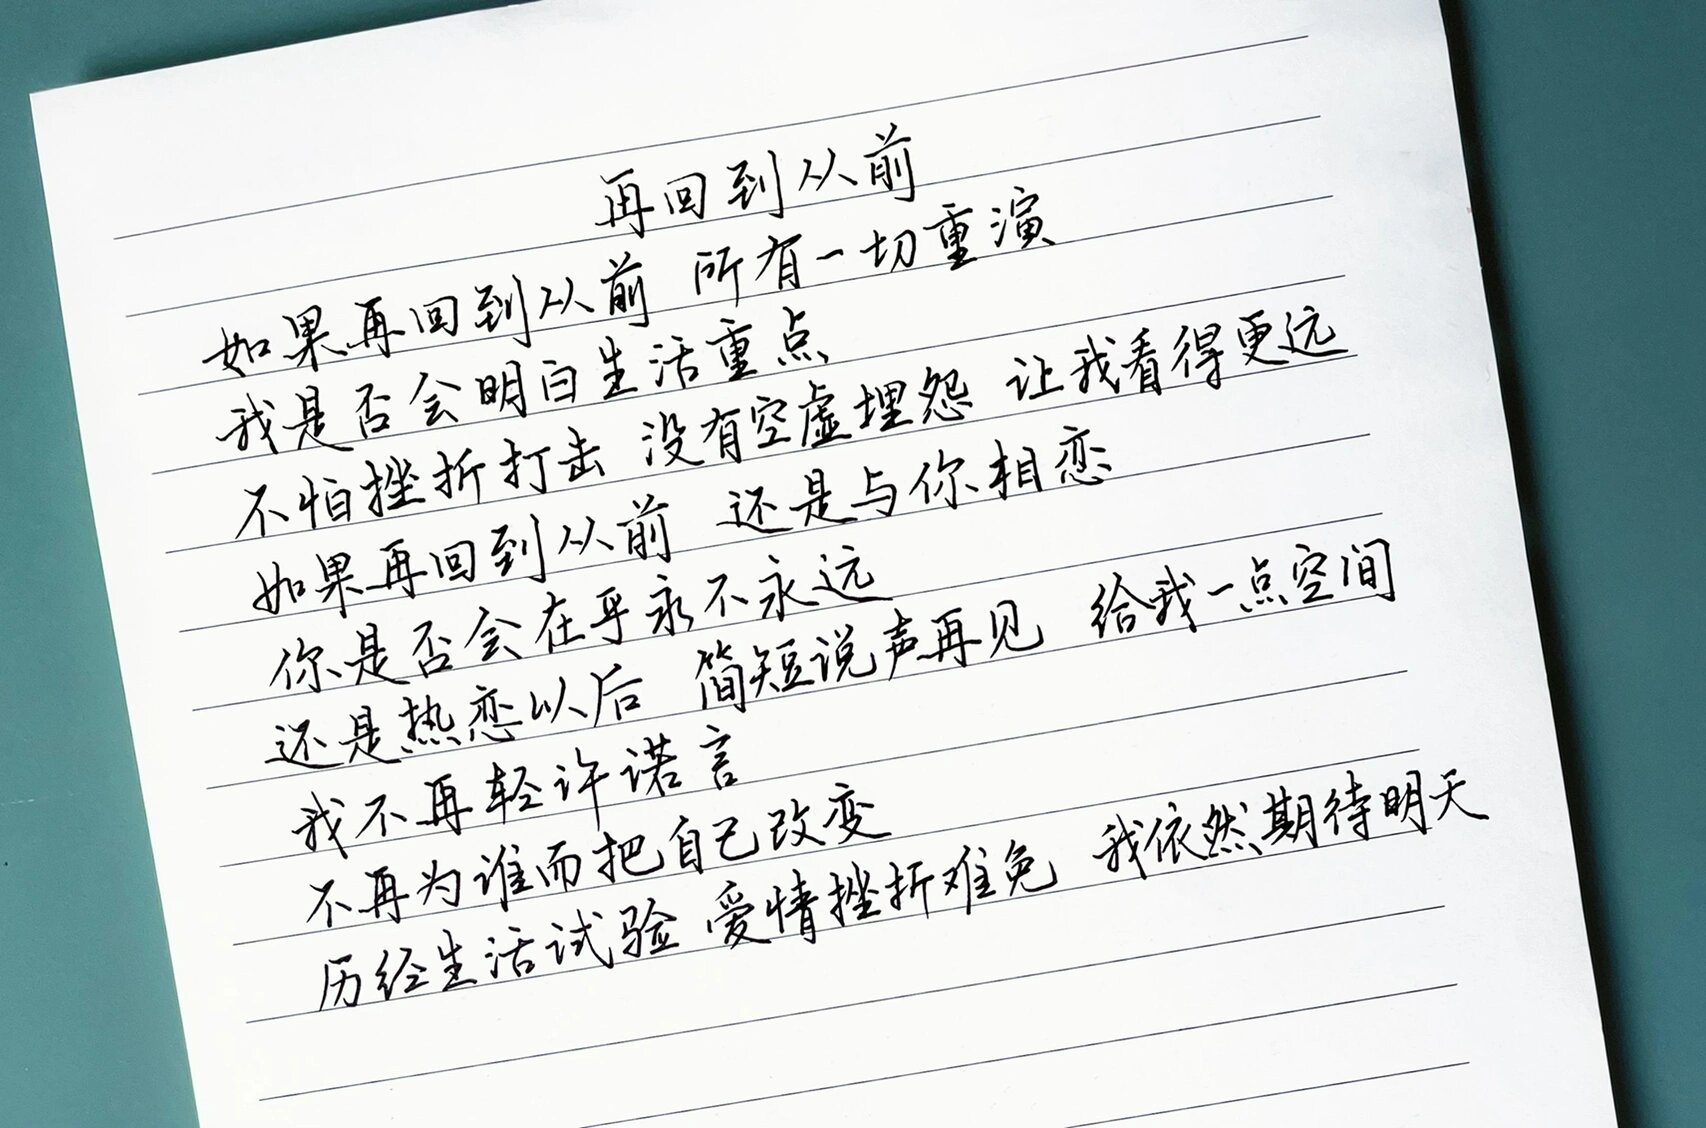 再回到从前
如果再回到从前 所有一切重演
我是否会明白生活重点
不怕挫折打击 没有空虚埋怨 让我看得更远
如果再回到从前 还是与你相恋
你是否会在乎永不永远
还是热恋以后 简短说声再见 给我一点空间
我不再轻许诺言
不再为谁而把自己改变
历经生活试验 爱情挫折难免 我依然期待明天